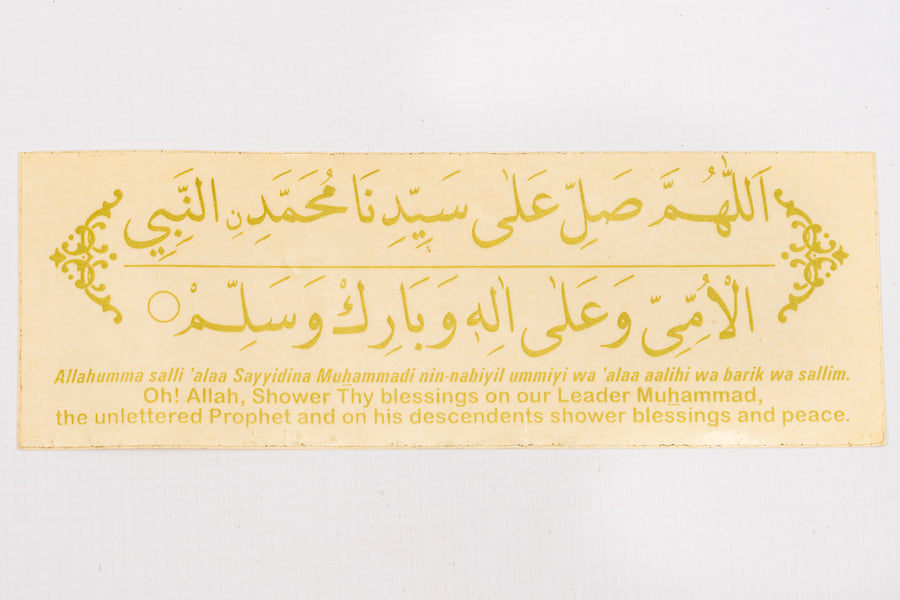 اَللّٰهُمَّ صَلِّ عَلٰى سَيِّدِنَا مُحَمَّدِنِ النَّبِيِّ
الْاُمِّىِّ وَعَلٰى اٰلِهٖ وَبَارِكْ وَسَلِّمْ
Allahumma salli 'alaa Sayyidina Muẖammadi nin-nabiyil ummiyi wa 'alaa aalihi wa barik wa sallim.
Oh! Allah, Shower Thy blessings on our Leader Muẖammad,
the unlettered Prophet and on his descendents shower blessings and peace.